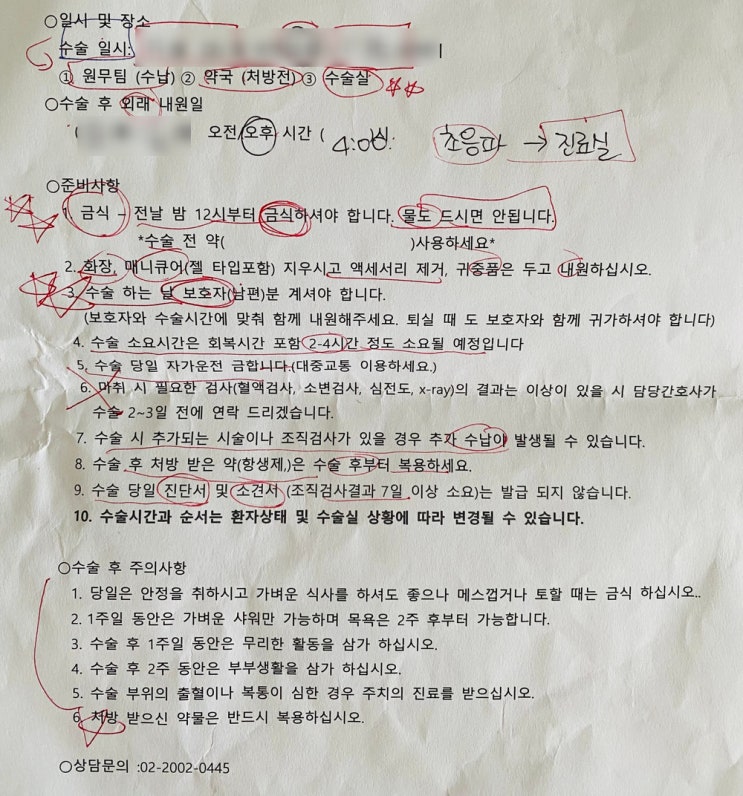 ○일시 및 장소
수술 일시:
① 원무팀 (수납) ② 약국 (처방전) ③ 수술실
○수술 후 외래 내원일
( 오전/오후 시간 ( 4:00시. 초음파 → 진료실
○준비사항
1. 금식 – 전날 밤 12시부터 금식하셔야 합니다. 물도 드시면 안됩니다.
*수술 전 약( )사용하세요*
2. 화장, 매니큐어(젤 타입포함) 지우시고 액세서리 제거, 귀중품은 두고 내원하십시오.
3. 수술 하는 날 보호자(남편)분 계셔야 합니다.
(보호자와 수술시간에 맞춰 함께 내원해주세요. 퇴실 때 도 보호자와 함께 귀가하셔야 합니다)
4. 수술 소요시간은 회복시간 포함 2-4시간 정도 소요될 예정입니다
5. 수술 당일 자가운전 금합니다.(대중교통 이용하세요.)
6. 마취 시 필요한 검사(혈액검사, 소변검사, 심전도, x-ray)의 결과는 이상이 있을 시 담당간호사가
수술 2~3일 전에 연락 드리겠습니다.
7. 수술 시 추가되는 시술이나 조직검사가 있을 경우 추가 수납이 발생될 수 있습니다.
8. 수술 후 처방 받은 약(항생제,)은 수술 후부터 복용하세요.
9. 수술 당일 진단서 및 소견서 (조직검사결과 7일 이상 소요)는 발급 되지 않습니다.
10. 수술시간과 순서는 환자상태 및 수술실 상황에 따라 변경될 수 있습니다.
○수술 후 주의사항
1. 당일은 안정을 취하시고 가벼운 식사를 하셔도 좋으나 메스껍거나 토할 때는 금식 하십시오..
2. 1주일 동안은 가벼운 샤워만 가능하며 목욕은 2주 후부터 가능합니다.
3. 수술 후 1주일 동안은 무리한 활동을 삼가 하십시오.
4. 수술 후 2주 동안은 부부생활을 삼가 하십시오.
5. 수술 부위의 출혈이나 복통이 심한 경우 주치의 진료를 받으십시오.
6. 처방 받으신 약물은 반드시 복용하십시오.
○상담문의 :02-2002-0445